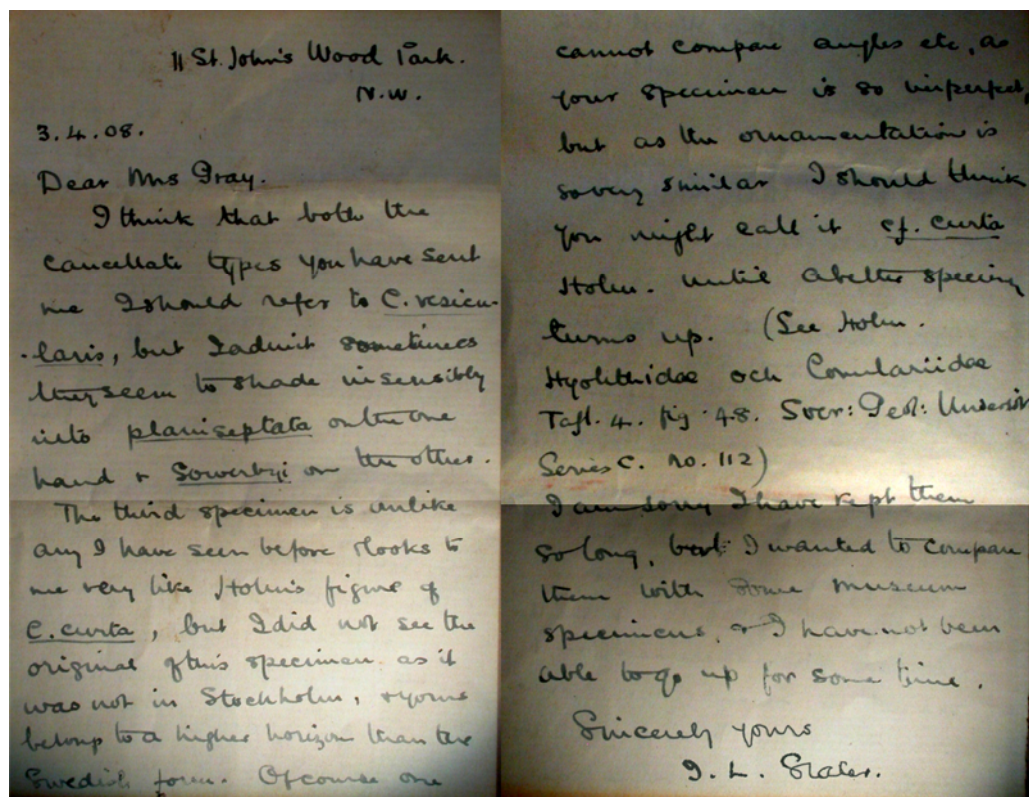 11 St. John's Wood Park.
N.W.
3.4.08.
Dear Mrs Gray.
I think that both the
cancellate types you have sent
me I should refer to C. vesicu-
-laris, but I admit sometimes
they seem to shade insensibly
into planiseptata on the one
hand & Sowerbyi on the other.
The third specimen is unlike
any I have seen before & looks to
me very like Holm's figure of
C. curta, but I did not see the
original of this specimen as it
was not in Stockholm, & yours
belongs to a higher horizon than the
Swedish form. Of course one
cannot compare angles etc, as
your specimen is so imperfect,
but as the ornamentation is
so very similar I should think
you might call it cf. curta
Holm. until a better specimen
turns up. (See Holm.
Hyolithidae och Conulariidae
Tafl. 4. fig. 48. Sver: Geol: Undersök
Series C. No. 112)
I am sorry I have kept them
so long, but I wanted to compare
them with some museum
specimens, & I have not been
able to go up for some time.
Sincerely yours
I. L. Slater.